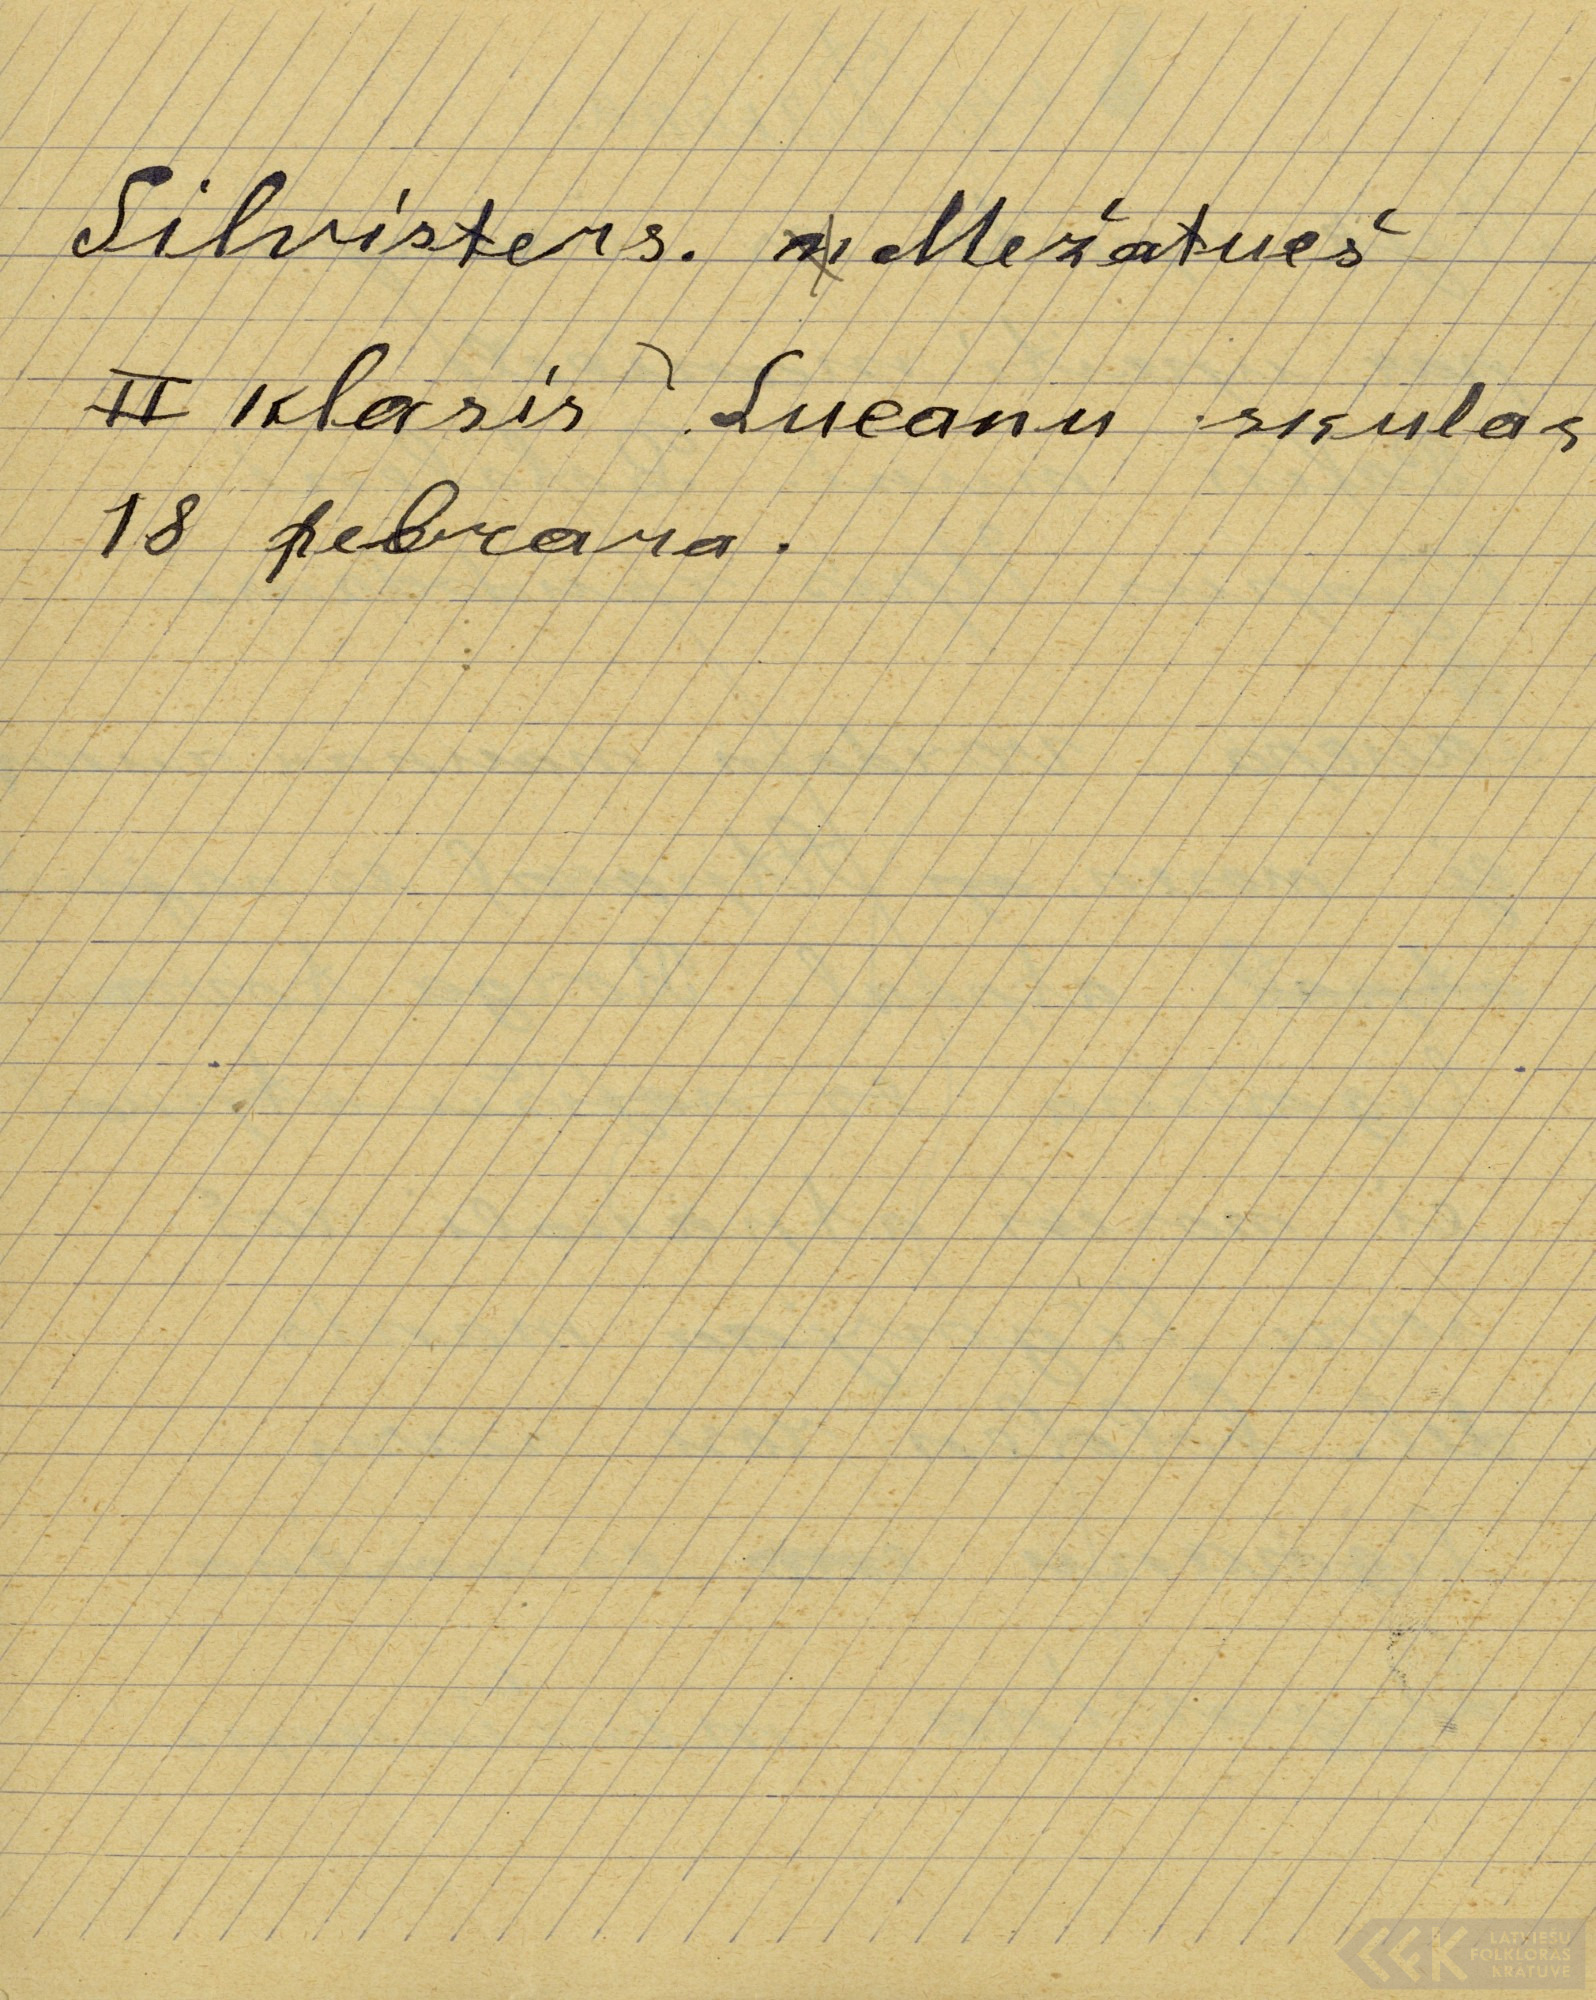 Silvisters. Mežatueš
II klasis Lucanu skulas
18 febrara.
LATVIEŠU
FOLKLORAS
KRĀTUVE